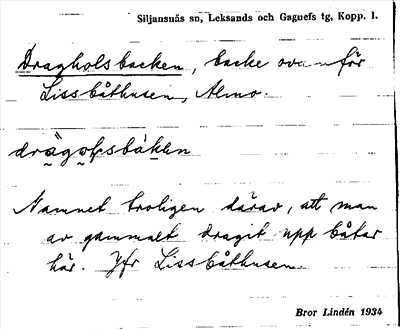 Siljansnäs sn, Leksands och Gagnefs tg, Kopp. l.
Dragholsbacken, backe ovanför
Lissbåthusen, Almo.
Namnet troligen därav, att man
av gammalt dragit upp båtar
här. Jfr Lissbåthusen.
Bror Lindén 1934